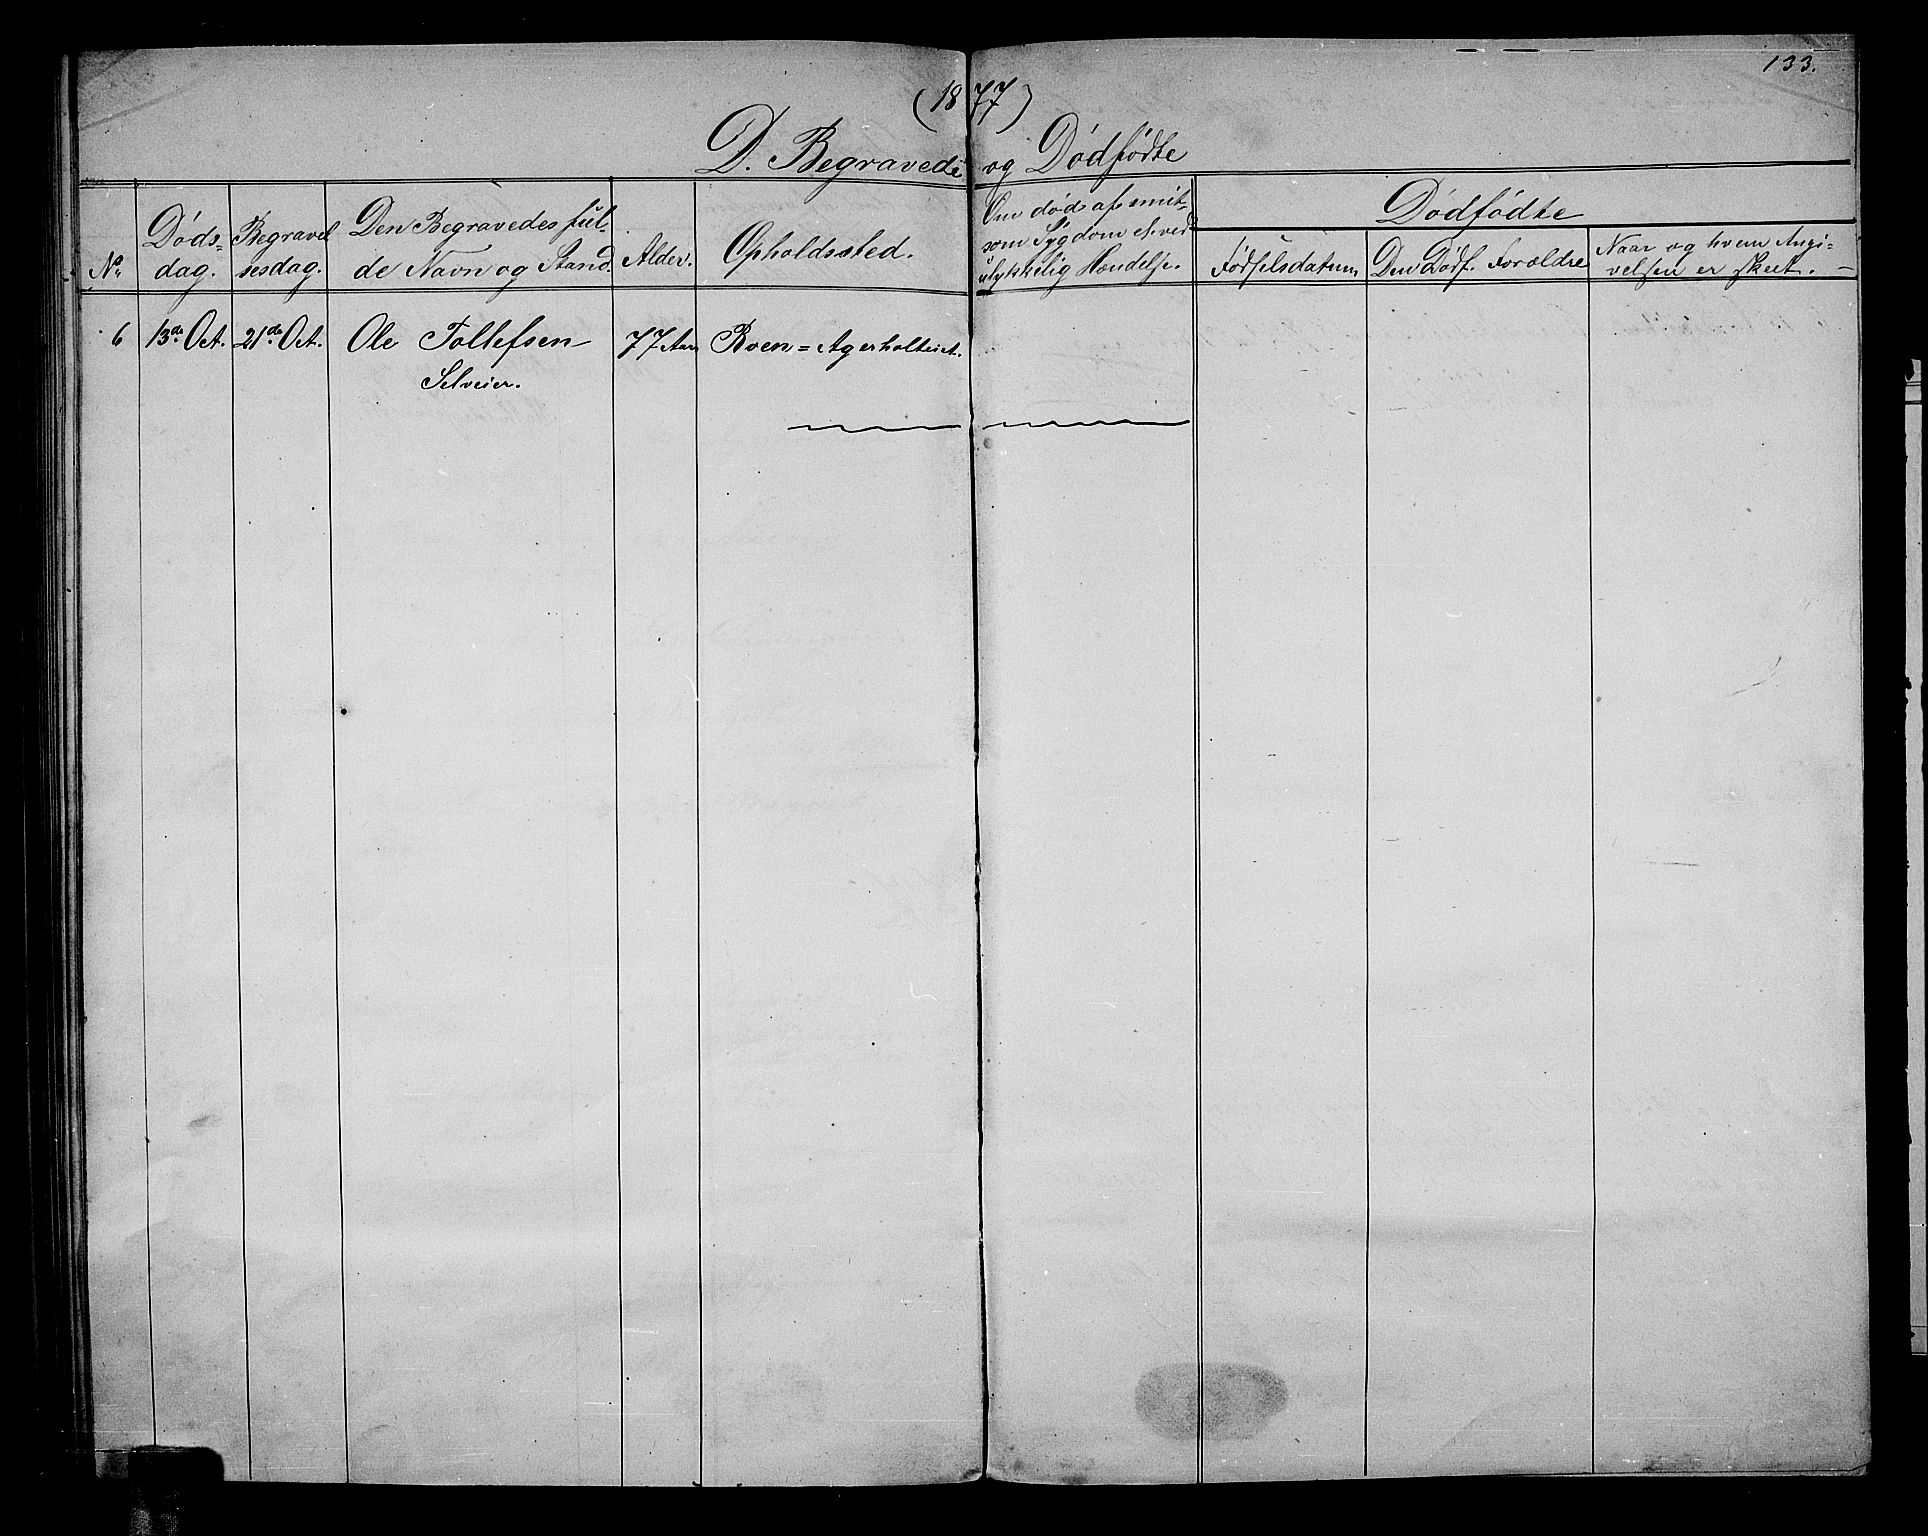 133.
(1877)
D. Begravede og Dødfødte
No.
Døds-
dag.
Begravel
sesdag.
Den Begravedes ful-
de Navn og Stand.
Alder.
Opholdssted.
Om død af smit-
som Sygdom el. ved
ulykkelig Hændelse.
Dødfødte
Fødselsdatum
Den Dødf. Forældre
Naar og hvem Angi-
velsen er skeet.
6 13de Oct. 21de Oct. Ole Tollefsen 77 Aar Roen = Agerholteiet.
Selveier.